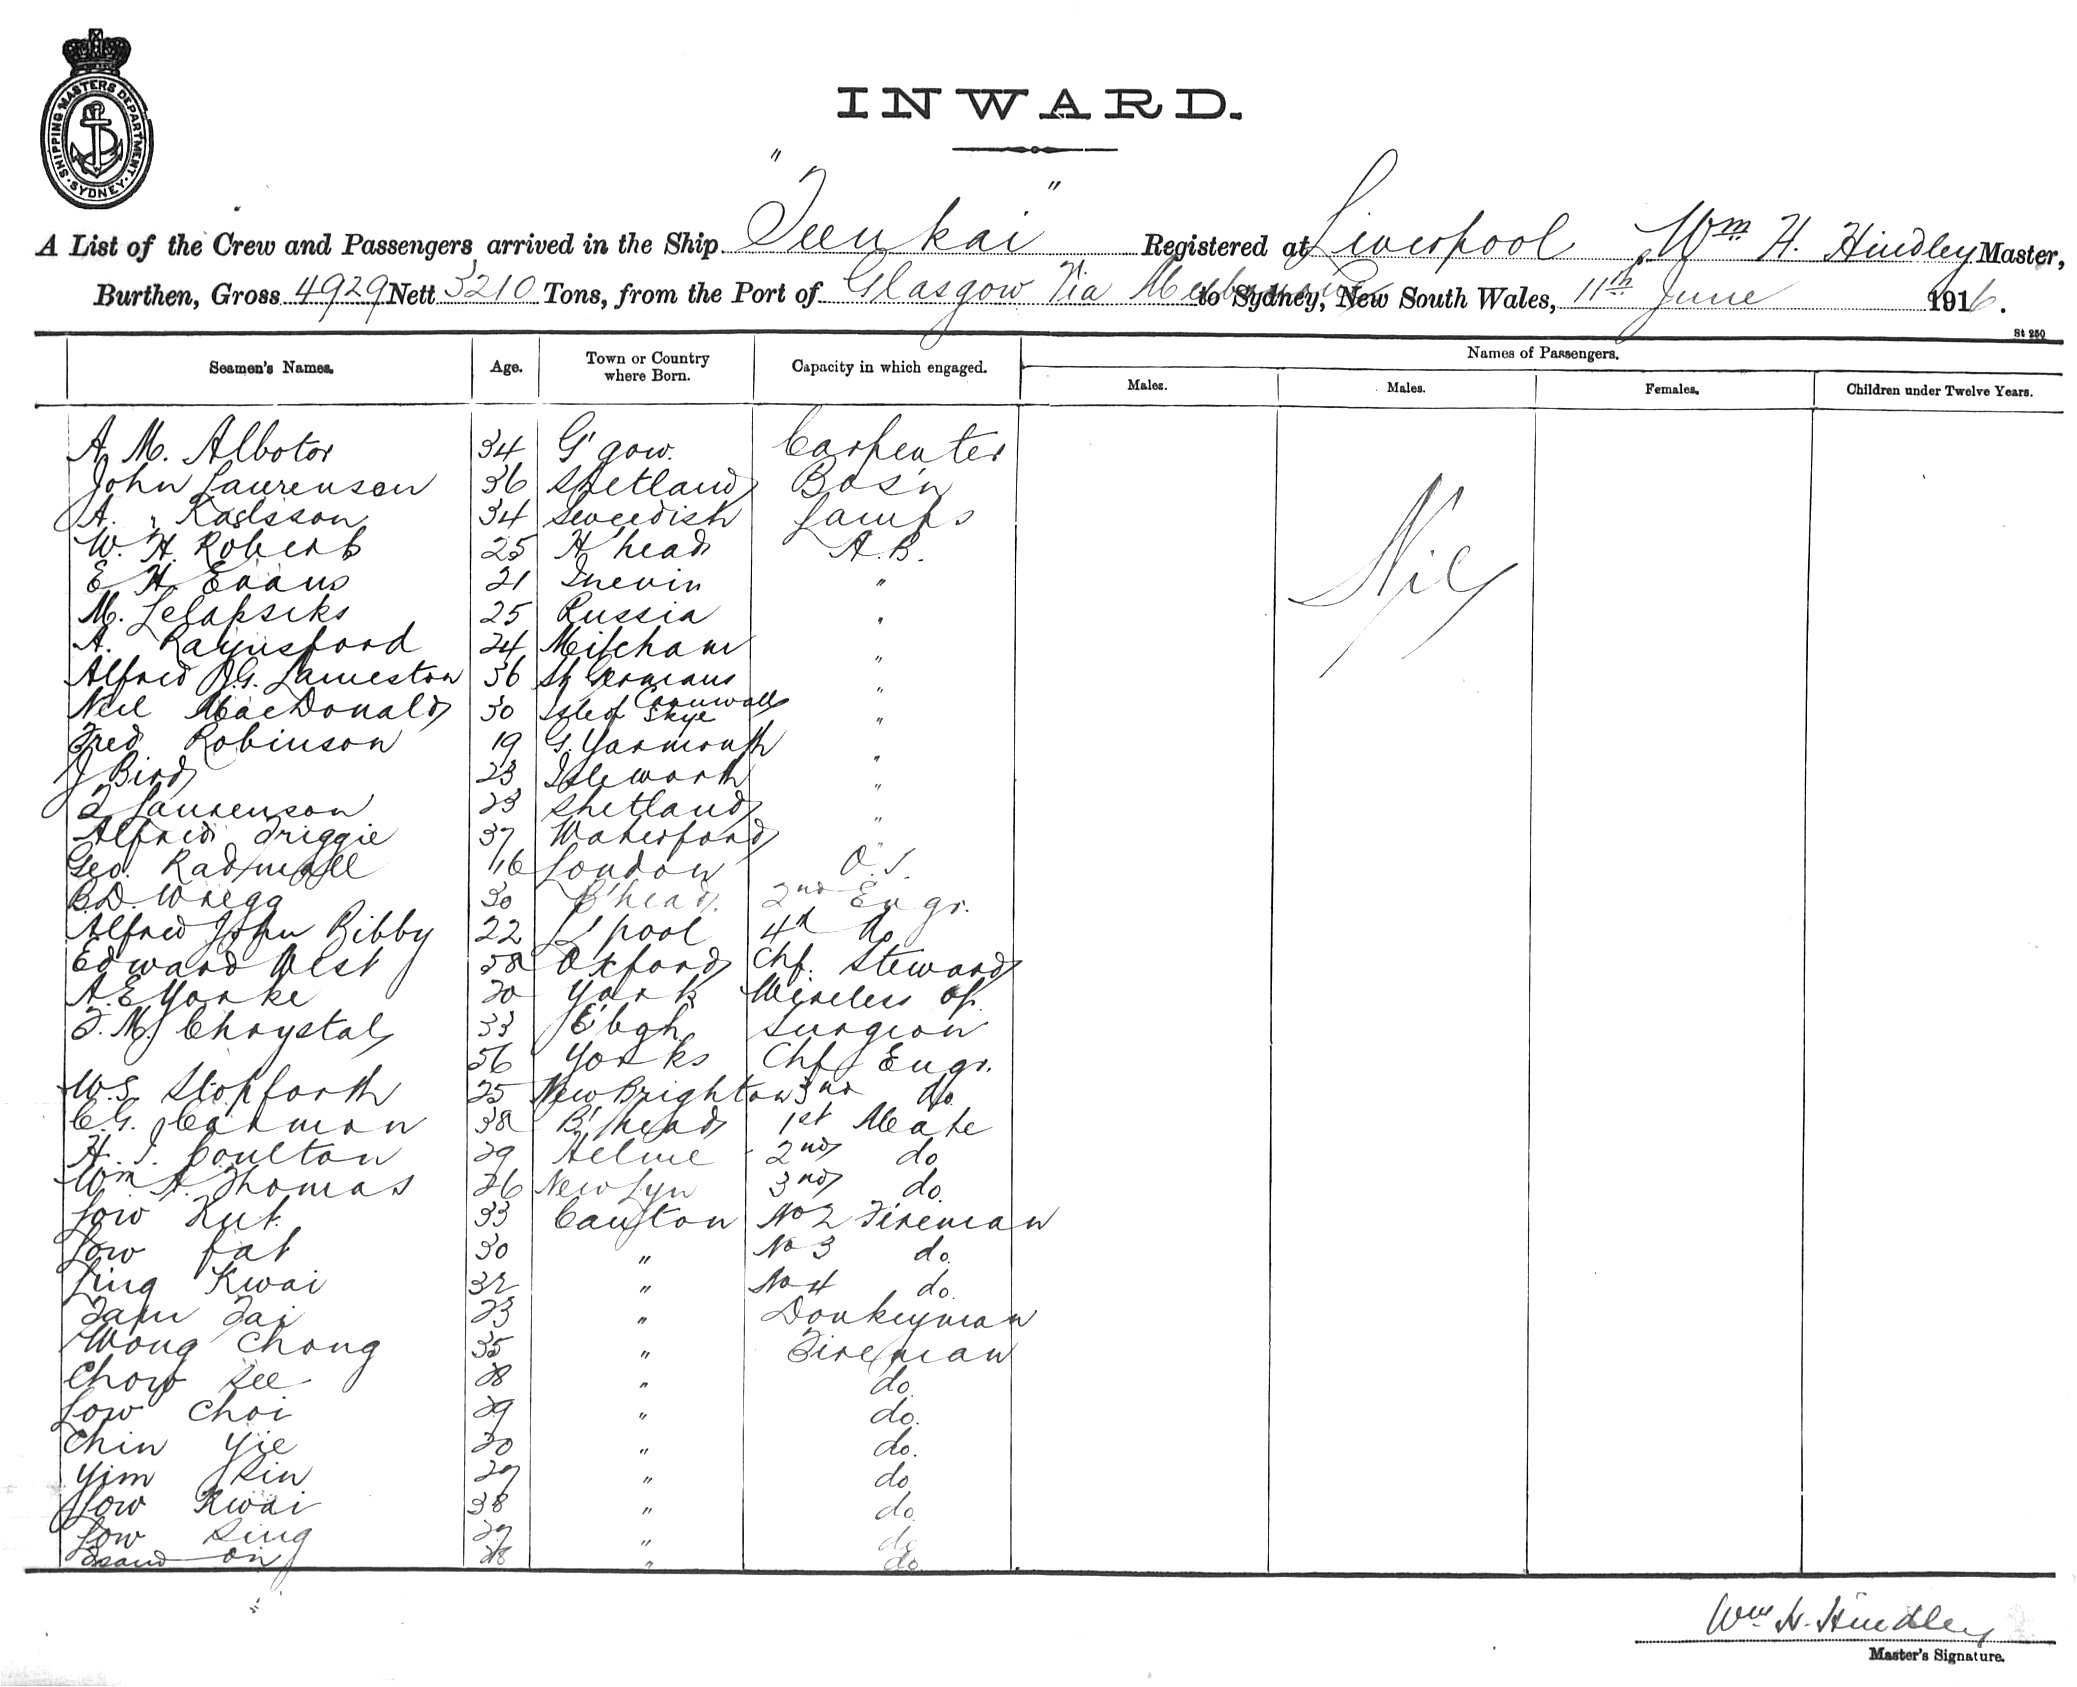 SHIPPING MASTERS DEPARTMENT. SYDNEY.
INWARD.
A List of the Crew and Passengers arrived in the Ship "Teenkai" Registered at Liverpool, Wm H. Hindley Master,
Burthen, Gross 4929 Nett 3210 Tons, from the Port of Glasgow Via Melbourne to Sydney, New South Wales, 11th June 1916.
St 250
Seamen's Names. Age. Town or Country where Born. Capacity in which engaged. Names of Passengers.
Males. Males. Females. Children under Twelve Years.
A. M. Albotor 34 G'gow. Carpenter
John Laurenson 36 Shetland Bos'n
A. Karlsson 34 Sweedish Lamps
W. H. Roberts 25 H'head A.B.
E H Evans 21 Inevin "
M. 25 Russia "
A. Raynsford 24 Mitcham "
Alfred J.G. Lameston 36 St Germans Cornwall "
Neil MacDonald 30 Isle of Skye "
Fred Robinson 19 G. Yarmouth "
J Bird 23 Isleworth "
T Laurenson 23 Shetland "
Alfred Triggie 37 Waterford "
Geo. Radmall 16 London O.S.
B.D. Wregg 30 B'head. 2nd Engr.
Alfred John Bibby 22 L'pool 4th do
Edward West 58 Oxford Chf. Steward
A.E Yorke 20 York Wireless op.
T. M. Chrystal 33 E'bgh Surgeon
56 Yorks Chf Engr.
W.S. Stopforth 25 New Brighton 3rd do.
C.G. Carmon 38 B'head 1st Mate
H. J. Coulton 29 Helme 2nd do
Wm A. Thomas 26 New Lyn 3rd do.
Low Kut. 33 Canton No 2 Fireman
Low Fat 30 " No 3 do.
Ling Kwai 32 " No 4 do.
Tam Tai 23 " Donkeyman
Wong Chong 35 " Fireman
Chow See 28 " do.
Low Choi 29 " do.
Chin Yie 20 " do.
Yim Sin 27 " do
Low Kwai 38 " do.
Low Sing 27 " do
on 28 " do.
Nil
Wm H. Hindley
Master's Signature.